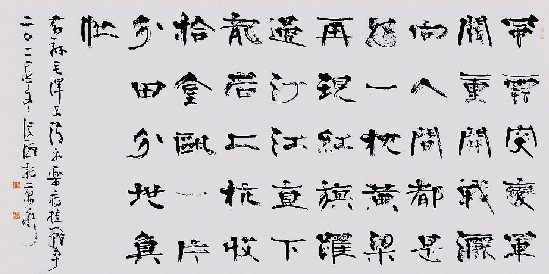 風雲突變軍
閥重開戰灑
向人間都是
怨一枕黃粱
再現紅旗躍
過汀江直下
龍岩上杭收
拾金甌一片
分田分地真
忙
毛澤東清平樂蔣桂戰爭
二〇二